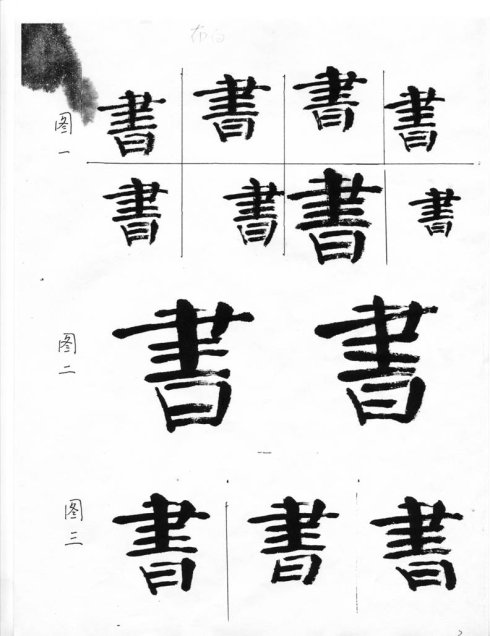 布白
图一
書 書 書 書
書 書 書 書
图二
書 書
图三
書 書 書